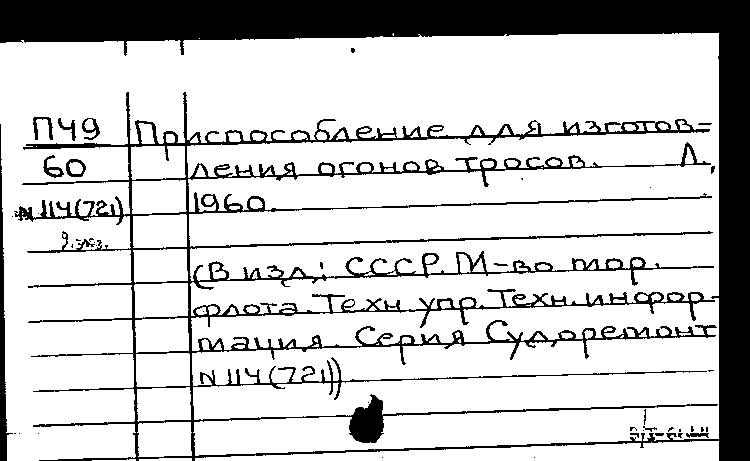 П49 Приспособление для изготов=
60 ления огонов тросов. Л.,
№ 114(721) 1960.
(В изд.: СССР. М-во мор.
флота. Техн. упр. Техн. инфор-
мация. Серия Судоремонт
№ 114(721))